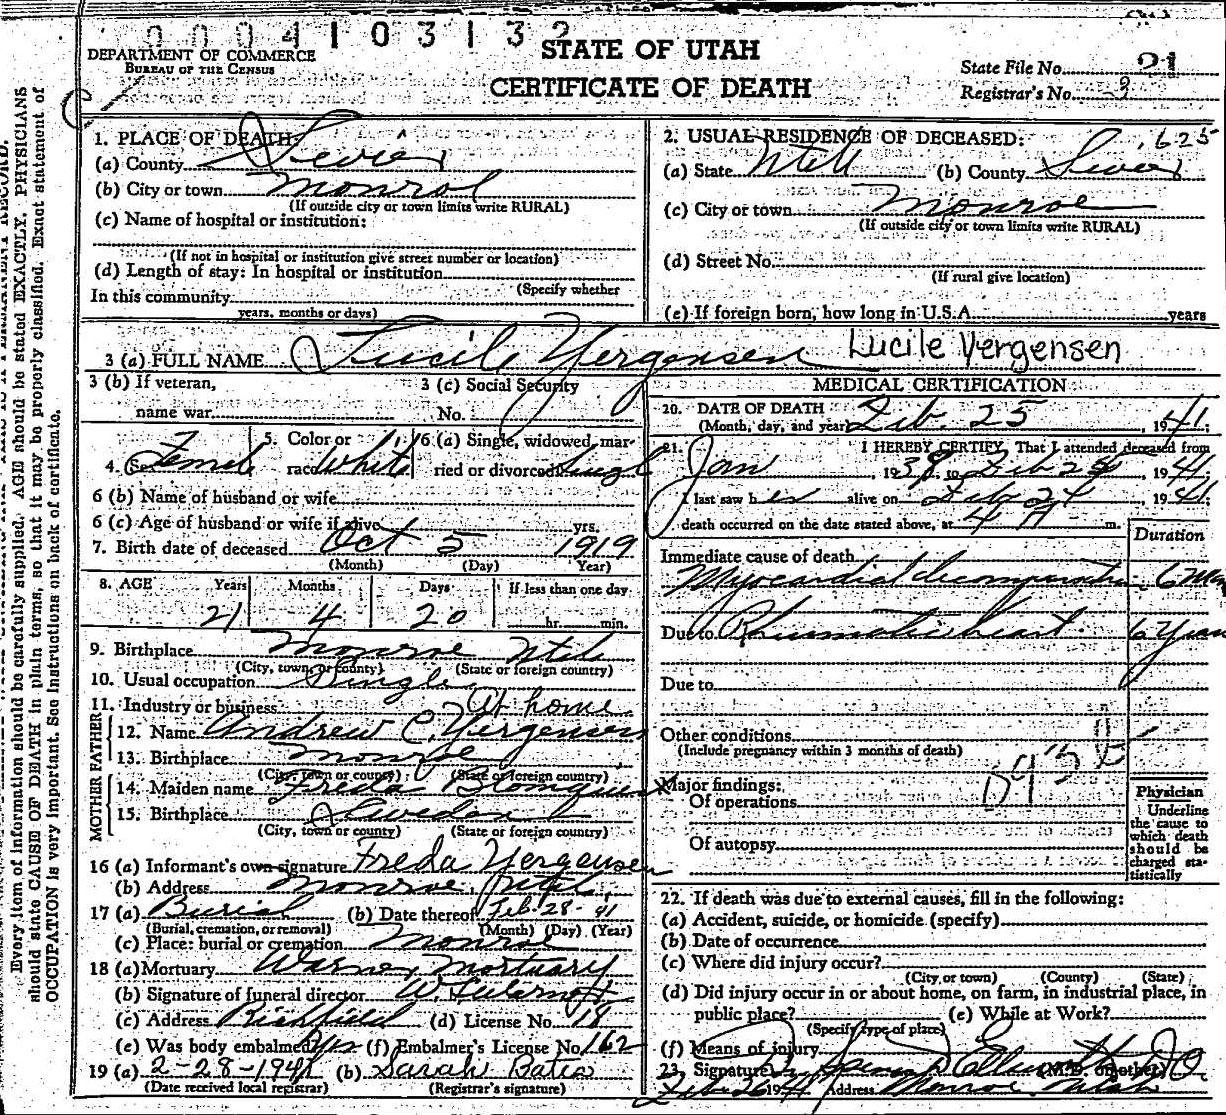 0004103132
DEPARTMENT OF COMMERCE
BUREAU OF THE CENSUS
STATE OF UTAH
CERTIFICATE OF DEATH
State File No. 21
Registrar's No. 3
Every item of information should be carefully supplied. AGE should be stated EXACTLY. PHYSICIANS
should state CAUSE OF DEATH in plain terms, so that it may be properly classified. Exact statement of
OCCUPATION is very important. See instructions on back of certificate.
1. PLACE OF DEATH:
(a) County Sevier
(b) City or town Monroe
(If outside city or town limits write RURAL)
(c) Name of hospital or institution:
(If not in hospital or institution give street number or location)
(d) Length of stay: In hospital or institution
(Specify whether
In this community
years, months or days)
2. USUAL RESIDENCE OF DECEASED: 625
(a) State Utah (b) County Sevier
(c) City or town Monroe
(If outside city or town limits write RURAL)
(d) Street No.
(If rural give location)
(e) If foreign born, how long in U.S.A. years
3 (a) FULL NAME Lucile Yergensen Lucile Yergensen
3 (b) If veteran,
name war
3 (c) Social Security
No.
4. Sex Female
5. Color or
race White
6 (a) Single, widowed, mar-
ried or divorced Single
6 (b) Name of husband or wife
6 (c) Age of husband or wife if alive yrs.
7. Birth date of deceased Oct 5 1919
(Month) (Day) Year)
8. AGE Years Months Days If less than one day
21 4 20 hr. min.
9. Birthplace Monroe Utah
(City, town, or county) (State or foreign country)
10. Usual occupation Single
11. Industry or business At home
FATHER
12. Name Andrew C. Yergensen
13. Birthplace Monroe
(City, town or county) (State or foreign country)
MOTHER
14. Maiden name Freda Blomquist
15. Birthplace Sweden
(City, town or county) (State or foreign country)
16 (a) Informant's own signature Freda Yergensen
(b) Address Monroe, Utah
17 (a) Burial (b) Date thereof Feb-28-41
(Burial, cremation, or removal) (Month) (Day) (Year)
(c) Place: burial or cremation Monroe
18 (a) Mortuary Warner Mortuary
(b) Signature of funeral director W.
(c) Address Richfield (d) License No. 18
(e) Was body embalmed Yes (f) Embalmer's License No. 162
19 (a) 2-28-1941 (b) Sarah Bates
(Date received local registrar) (Registrar's signature)
MEDICAL CERTIFICATION
20. DATE OF DEATH
(Month, day, and year Feb. 25, 1941.
21. I HEREBY CERTIFY, That I attended deceased from
Jan, 1938, to Feb 25 1941
I last saw her alive on Feb 24 1941;
death occurred on the date stated above, at 4 A m.
Duration
Immediate cause of death
Myocardial decompensation 6 Mos
Due to Rheumatic heart. 6 Years
Due to
Other conditions
(Include pregnancy within 3 months of death)
Major findings:
Of operations
Of autopsy
Physician
Underline
the cause to
which death
should be
charged sta-
tistically
22. If death was due to external causes, fill in the following:
(a) Accident, suicide, or homicide (specify)
(b) Date of occurrence
(c) Where did injury occur?
(City or town) (County) (State)
(d) Did injury occur in or about home, on farm, in industrial place, in
public place? (e) While at Work?
(Specify type of place)
(f) Means of injury
23. Signature (M.D. or other)
Feb 26 1941 Address Monroe Utah